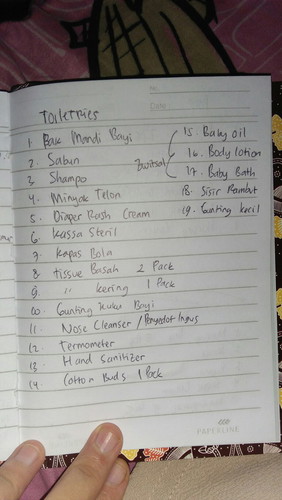 No.
Date
TOILETRIES
1. Bak Mandi Bayi
2. Sabun
3. Shampo
4. Minyak Telon
5. Diaper Rash Cream
6. Kassa Steril
7. Kapas Bola
8. tissue Basah 2 Pack
9. " kering 1 Pack
10. Gunting Kuku Bayi
11. Nose Cleanser / Penyedot Ingus
12. Termometer
13. Hand Sanitizer
14. Cotton Buds 1 Pack
Zwitsal
15. Baby oil
16. Body lotion
17. Baby Bath
18. Sisir Rambut
19. Gunting kecil
PAPERLINE